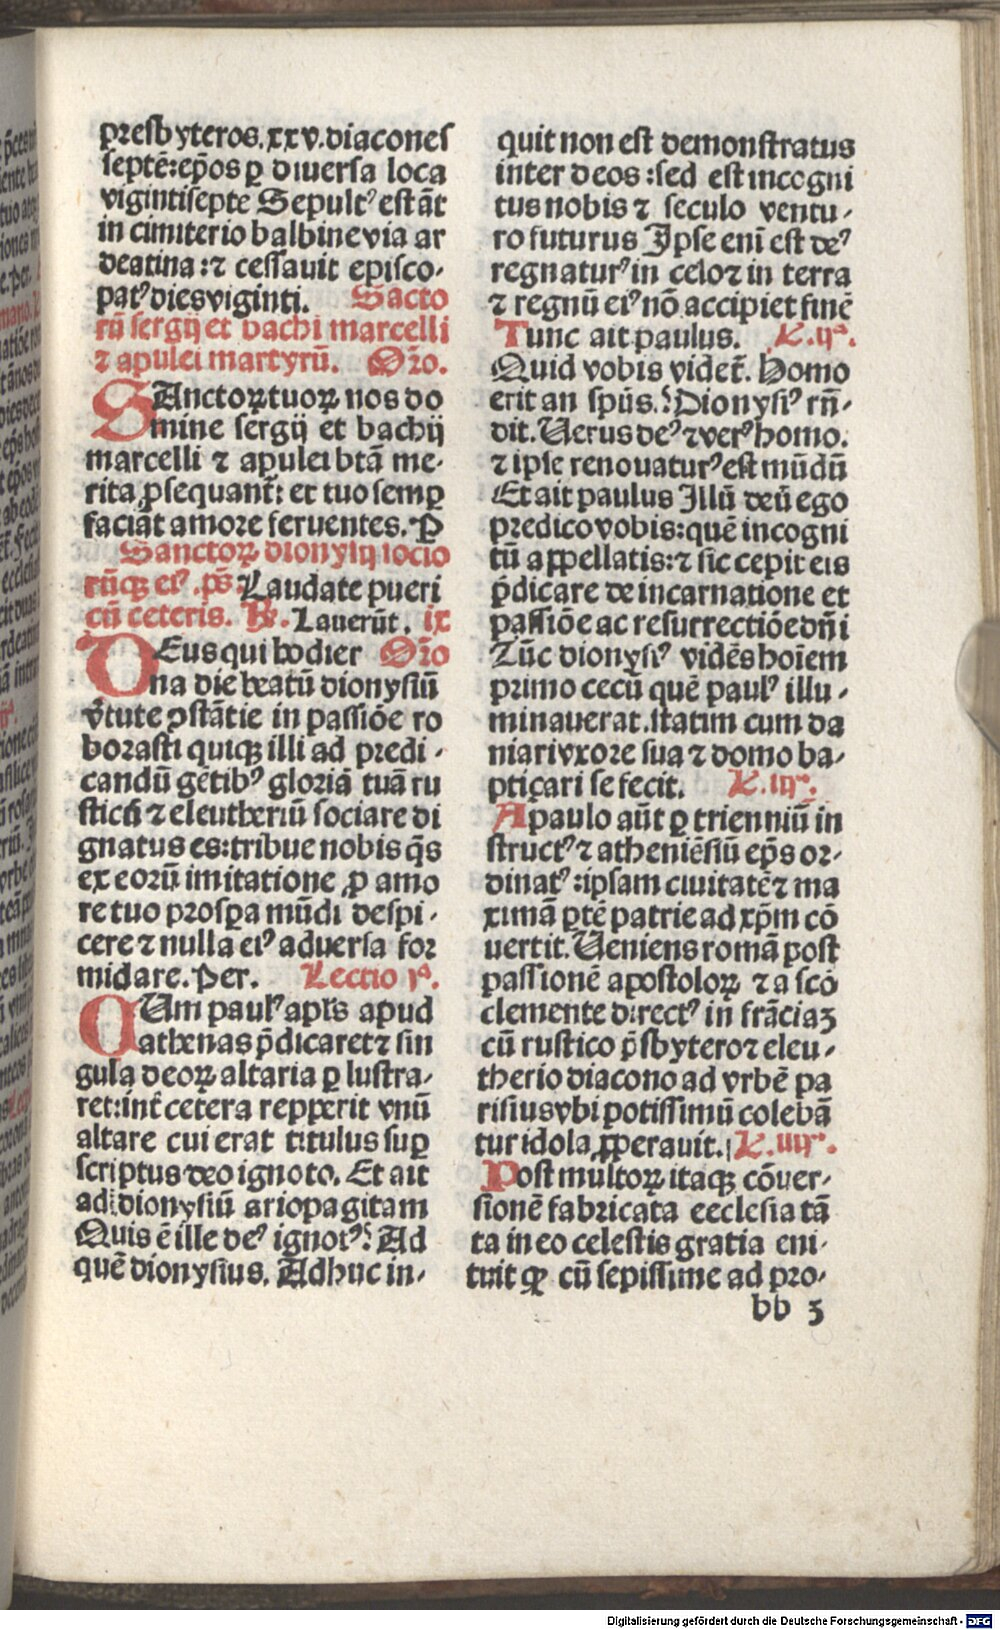 presbyteros.xxv.diacones
septē:ep̄os ꝑ diuersa loca
vigintisepte Sepultꝰ est āt
in cimiterio balbine via ar
deatina:⁊ cessauit episco⸗
patꝰ dies viginti. Sācto
rū sergij et bachi marcelli
⁊ apulei martyrū. Or̄o.
SAnctoꝝ tuoꝝ nos do
mine sergij et bachij
marcelli ⁊ apulei btā me⸗
rita ꝓsequant̄: et tuo semꝑ
faciāt amore feruentes. P̄
Sanctoꝝ dionysij socio
rūqꝫ eiꝰ .ps̄. Laudate pueri
cū ceteris. ℟. Lauerūt. ix
DEus qui hodier Or̄o
na die beatū dionysiū
v̄tute ꝯstātie in passiōe ro
borasti quiqꝫ illi ad predi⸗
candū gētibꝰ gloriā tuā ru
sticū ⁊ eleutheriū sociare di
gnatus es:tribue nobis q̄s
ex eorū imitatione ꝓ amo
re tuo prospꝑa mūdi despi⸗
cere ⁊ nulla eiꝰ aduersa for
midare. Per. Lectio jª.
CUm paulꝰ apl̄s apud
athenas p̄dicaret ⁊ sin
gula deoꝝ altaria ꝑ lustra⸗
ret:int̄ cetera repperit vnū
altare cui erat titulus suꝑ
scriptus deo ignoto. Et ait
ad dionysiū ariopagitam
Quis ē ille deꝰ ignotꝰ? Ad
quē dionysius. Adhuc in⸗
quit non est demonstratus
inter deos:sed est incogni
tus nobis ⁊ seculo ventu⸗
ro futurus Ipse enī est deꝰ
regnaturꝰ in celo ⁊ in terra
⁊ regnū eiꝰ nō accipiet finē
Tunc ait paulus. L.ijª.
Quid vobis videt̄. Homo
erit an sp̄us? Dionysiꝰ rn̄⸗
dit. Verus deꝰ ⁊ verꝰ homo.
⁊ ipse renouaturꝰ est mūdū
Et ait paulus Illū deū ego
predico vobis:quē incogni
tū appellatis:⁊ sic cepit eis
p̄dicare de incarnatione et
passiōe ac resurrectiōe dn̄i
Tūc dionysiꝰ vidēs hoīem
primo cecū quē paulꝰ illu⸗
minauerat.statim cum da
mari vxore sua ⁊ domo ba⸗
ptiçari se fecit. L.iijª.
A paulo aūt ꝑ trienniū in
structꝰ ⁊ atheniēsiū ep̄s or⸗
dinatꝰ:ipsam ciuitatē ⁊ ma
ximā ꝑtē patrie ad xp̄m cō
uertit. Veniens romā post
passionē apostoloꝝ ⁊ a scō
clemente directꝰ in frāciaꝫ
cū rustico p̄sbytero ⁊ eleu⸗
therio diacono ad vrbē pa
risius vbi potissimū colebā
tur idola ꝓperauit. L.iiijª.
Post multoꝝ itaqꝫ cōuer⸗
sionē fabricata ecclesia tā
ta in eo celestis gratia eni⸗
tuit ꝙ cū sepissime ad pro⸗
bb 3
Digitalisierung gefördert durch die Deutsche Forschungsgemeinschaft - DFG